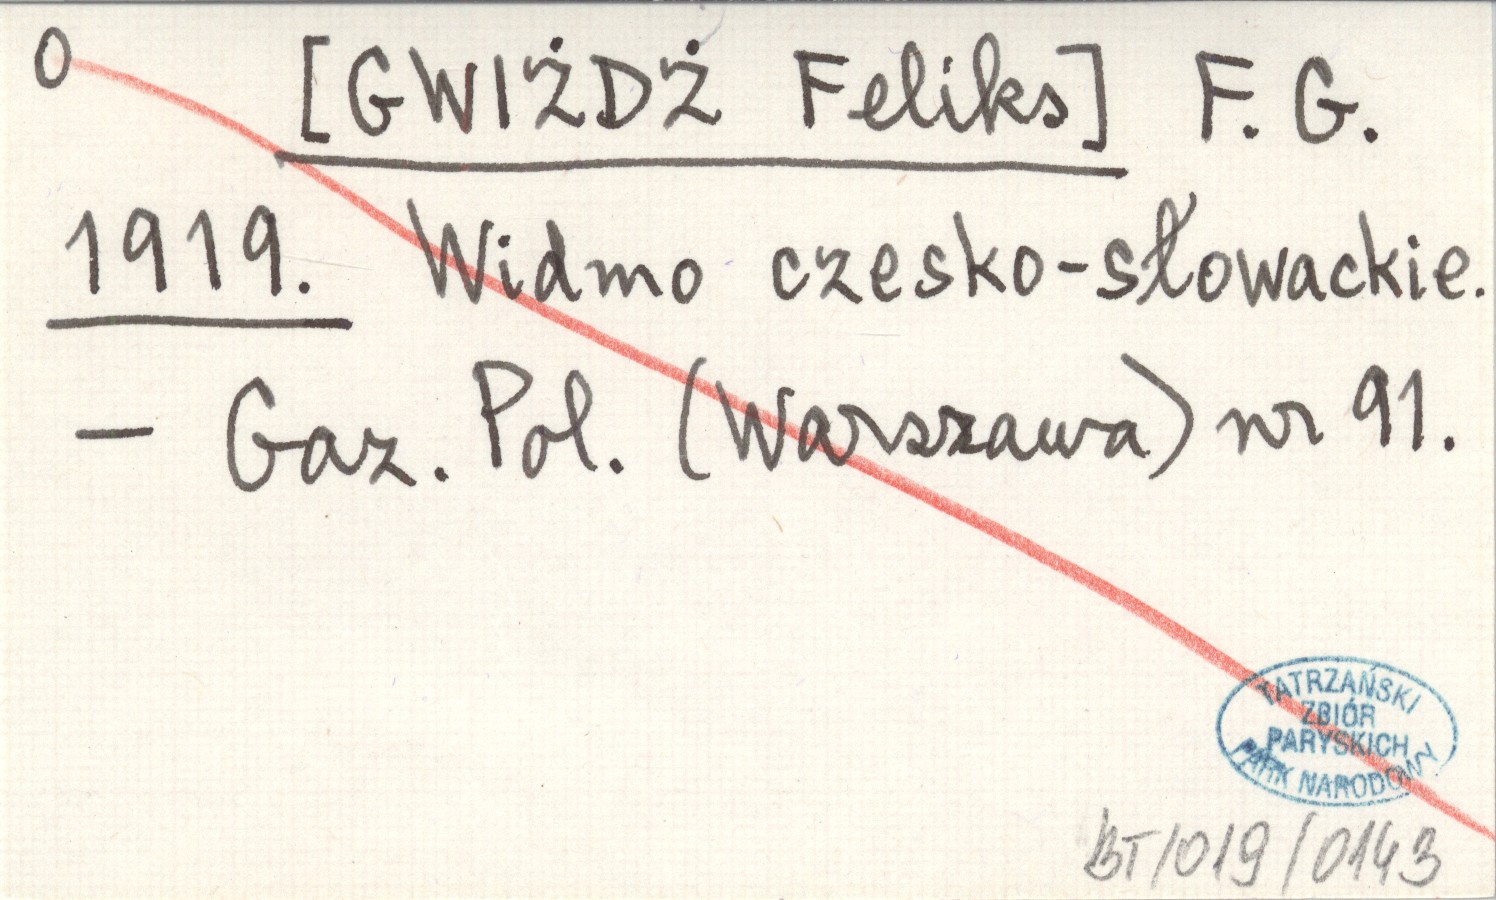 O [GWIŻDŻ Feliks] F. G.
1919. Widmo czesko-słowackie.
— Gaz. Pol. (Warszawa) nr 91.
TATRZAŃSKI
ZBIÓR
PARYSKICH
PARK NARODOWY
BT/019/0143